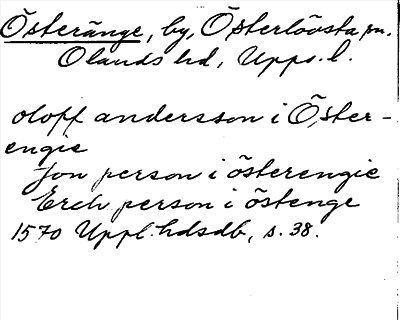 Österänge, by, Österlövsta sn.
Olands hd, Upps. l.
oloff andersson i Öster-
engie
Jon person i österengie
Erch person i östenge
1570 Uppl. hdsdb, s. 38.